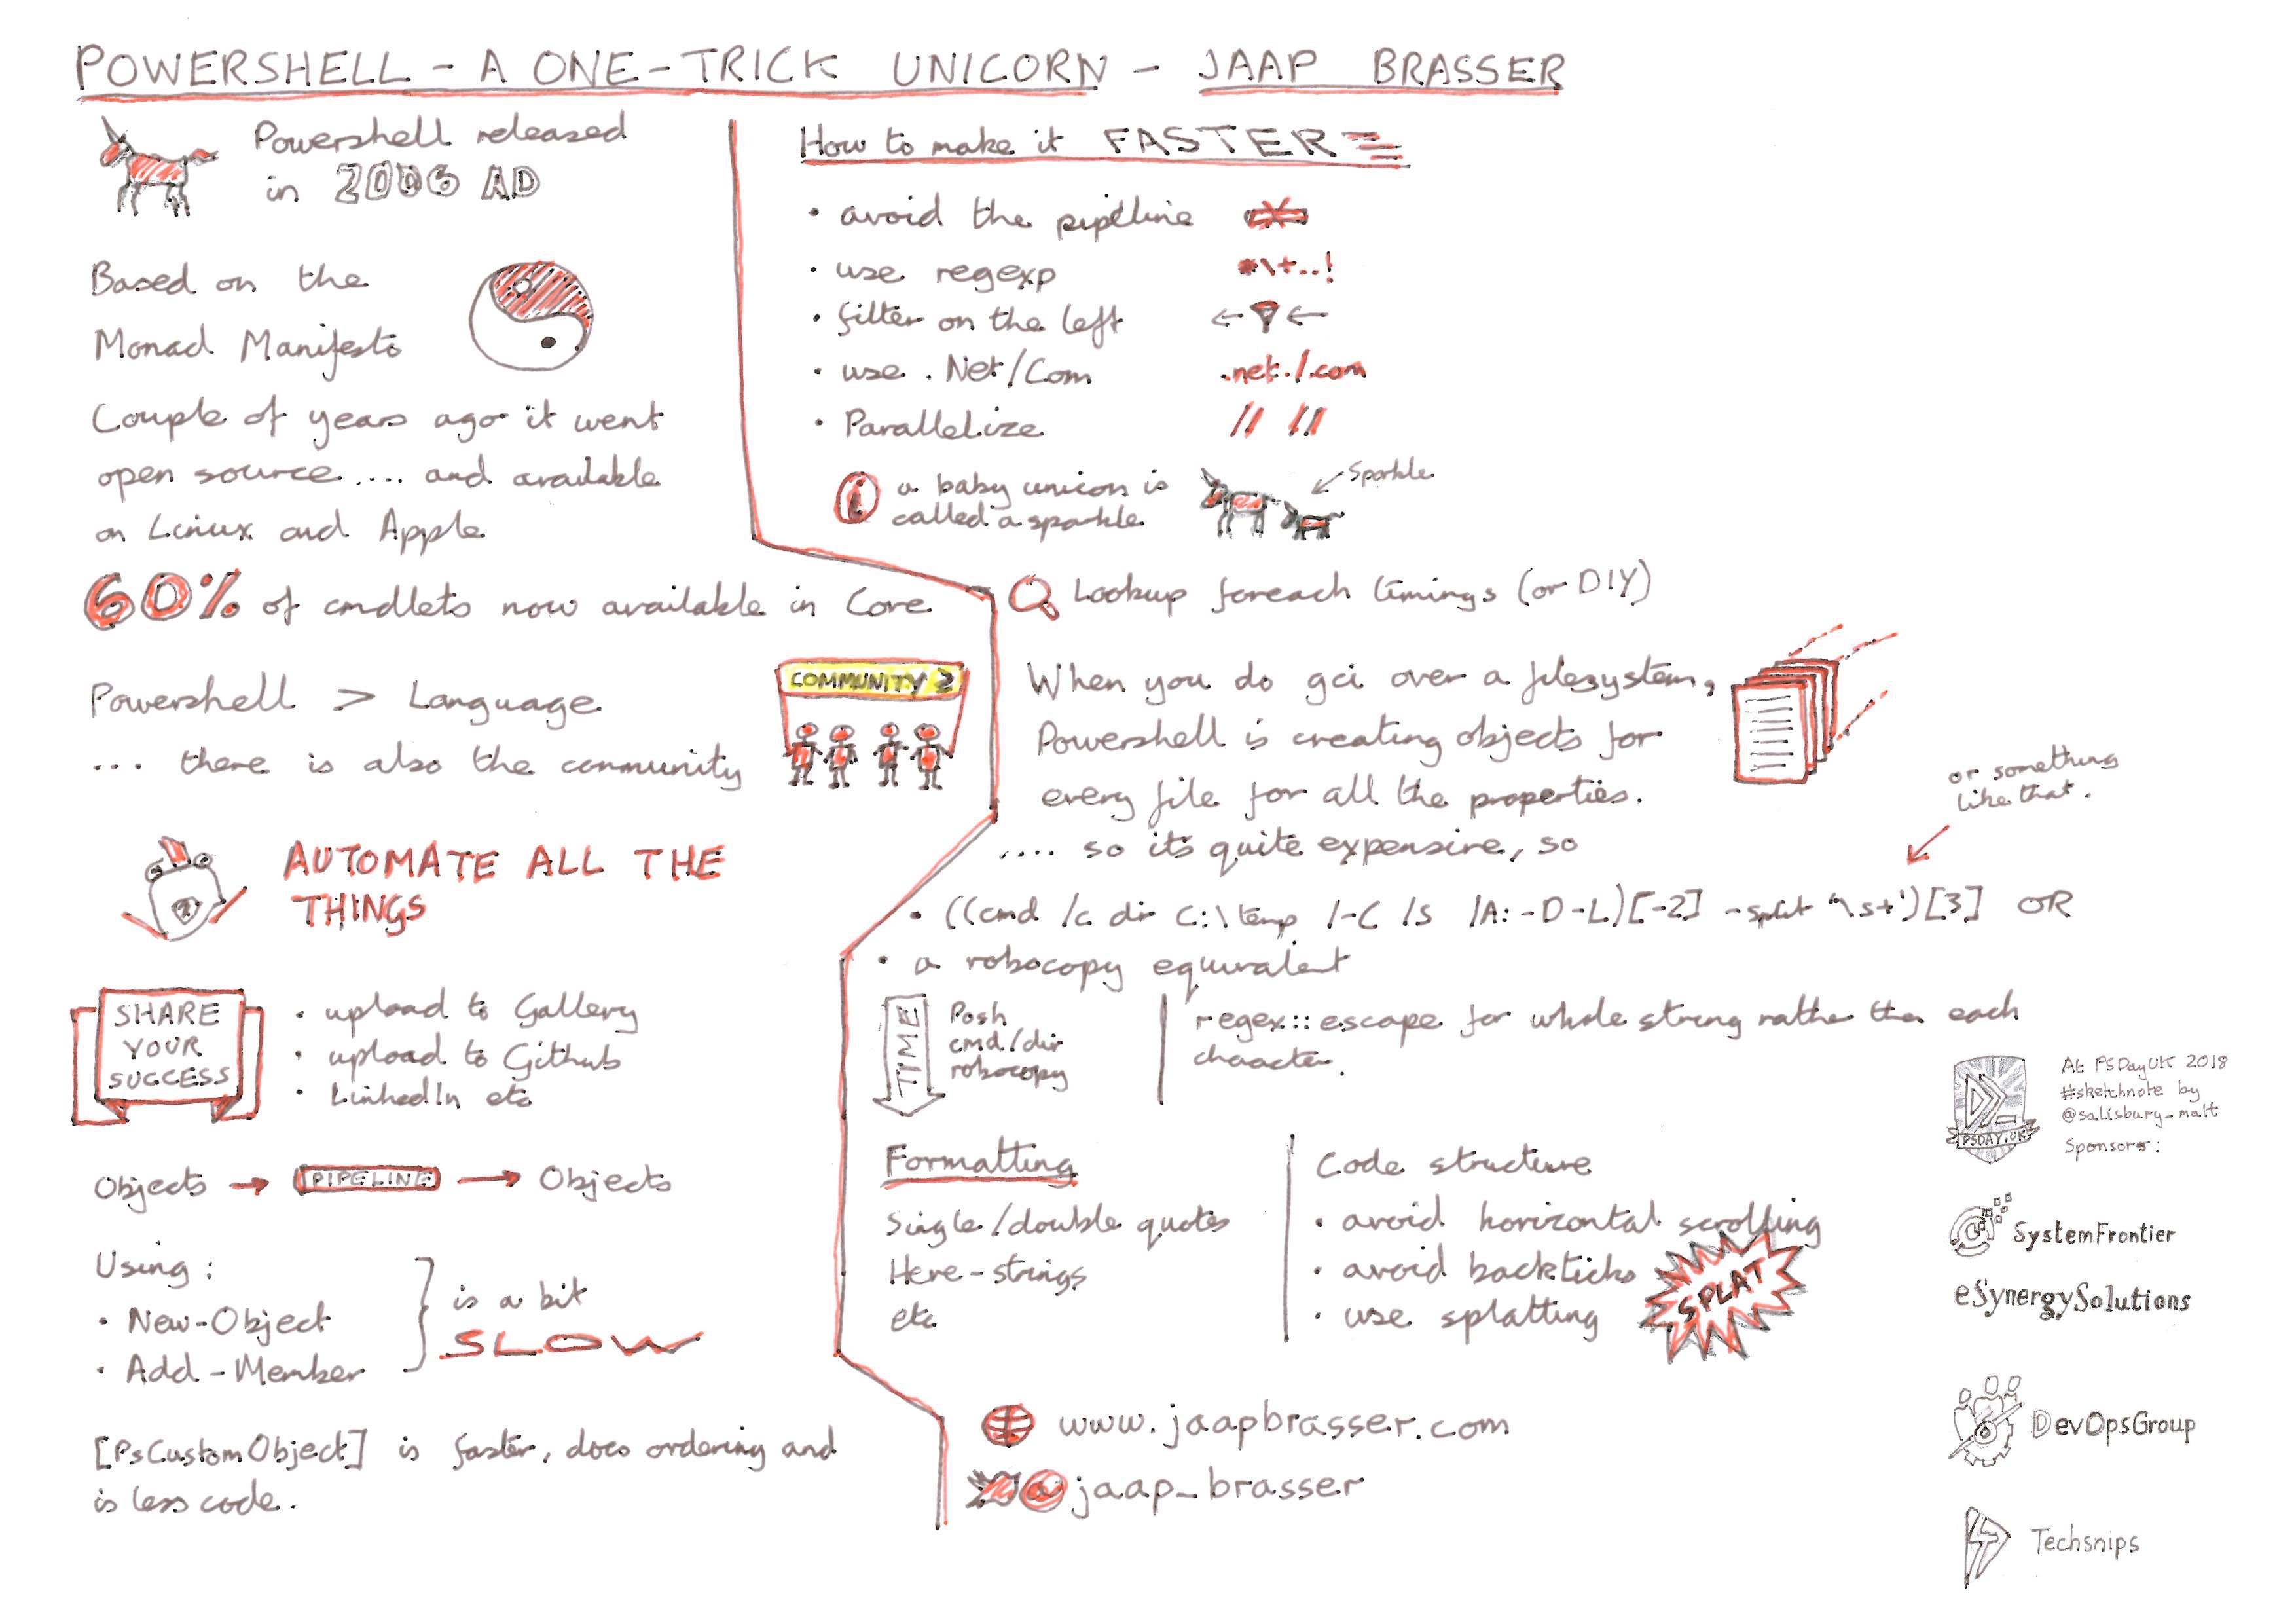 POWERSHELL - A ONE-TRICK UNICORN - JAAP BRASSER
Powershell released
in 2006 AD
Based on the
Monad Manifesto
Couple of years ago it went
open source .... and available
on Linux and Apple
60% of cmdlets now available in Core
Powershell > Language
... there is also the community
COMMUNITY
AUTOMATE ALL THE
THINGS
SHARE
YOUR
SUCCESS
• upload to Gallery
• upload to Github
• LinkedIn etc
Objects → PIPELINE → Objects
Using:
• New-Object
• Add-Member
} is a bit
SLOW
[PsCustomObject] is faster, does ordering and
is less code.
How to make it FASTER
• avoid the pipeline
• use regexp *\+..!
• filter on the left
• use .Net/Com .net./.com
• Parallelize // //
i a baby unicon is
called a sparkle
Sparkle
Lookup foreach timings (or DIY)
When you do gci over a filesystem,
Powershell is creating objects for
every file for all the properties.
.... so its quite expensive, so
or something
like that.
• ((cmd /c dir C:\temp /-C /S /A:-D-L)[-2] -split '\s+')[3] OR
• a robocopy equivalent
TIME
Posh
cmd/dir
robocopy
regex::escape for whole string rather than each
character.
Formatting
Single/double quotes
Here-strings
etc
Code structure
• avoid horizontal scrolling
• avoid backticks
• use splatting
SPLAT
www.jaapbrasser.com
@jaap_brasser
PSDAY.UK
At PSDayUK 2018
#sketchnote by
@salisbury_matt
Sponsors:
SystemFrontier
eSynergySolutions
DevOpsGroup
Techsnips